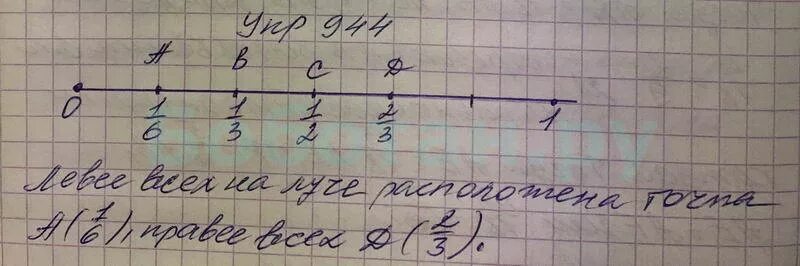 Упр 944
A B C D
0 1/6 1/3 1/2 2/3 1
Левее всех на луче расположена точка
A(1/6), правее всех D(2/3).